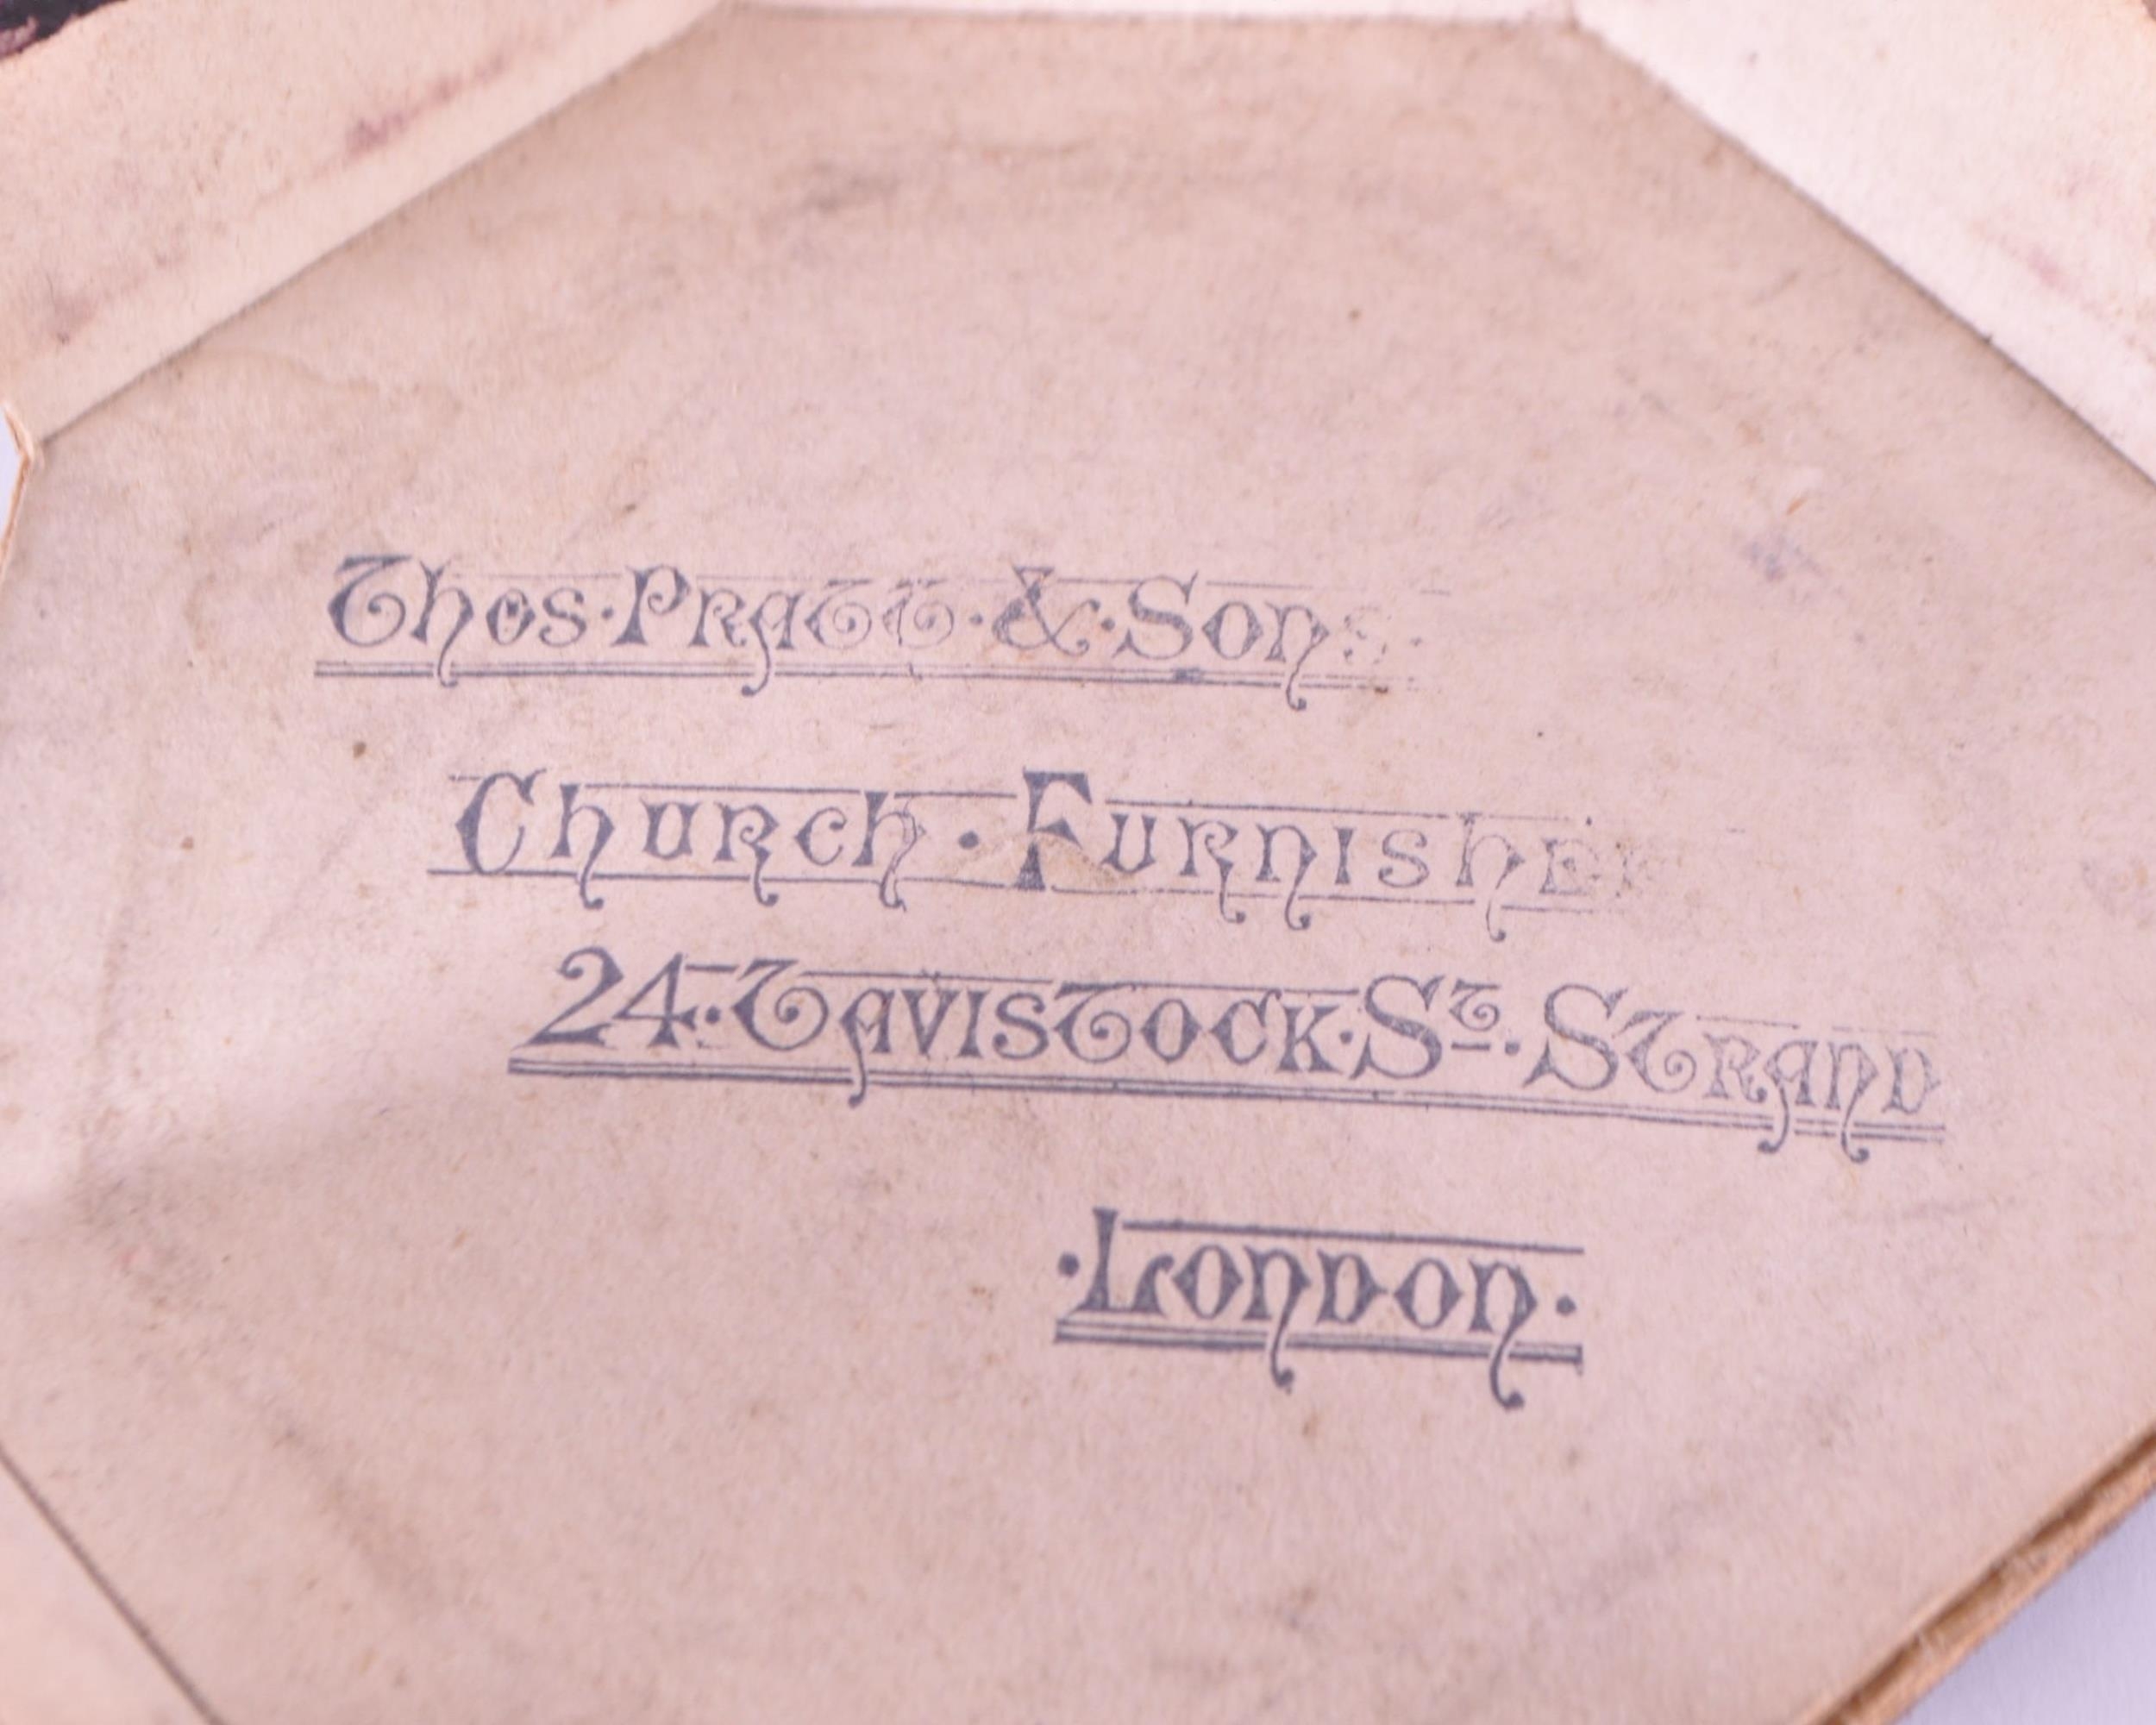 Thos·Pratt·&·Sons·
Church·Furnisher
24·Tavistock·St·Strand
·London·